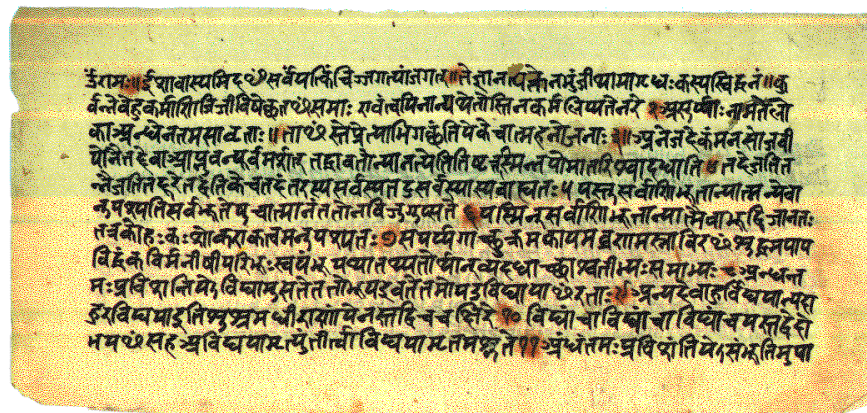 ॐरामः॥ईशावास्यमिदꣳसर्वंयत्किंचिज्जगत्यांजगत्॥तेनत्यक्तेनभुंजीथामागृधःकस्यस्विद्धनं॥कु
र्वन्नेवेहकर्माणिजिजीविषेछतꣳसमाः एवंत्वयिनान्यथेतोस्तिनकर्मलिप्यतेनरे २ असूर्य्याःनामतेलो
काअन्धेनतमसावृताः॥ताꣳस्तेप्रेत्याभिगछंतियेकेचात्महनोजनाः ३॥अनेजदेकंमनसोजवी
योनैनद्देवाआप्नुवन्पूर्वमर्शत् तद्धावतोन्यानत्येतितिष्टत्तस्मिन्नपोमातरिश्वादधाति ४ तदेजतित
न्नैजतितद्दूरेतद्वंतिकेचतदंतरस्यसर्वस्यतदुसर्वस्यास्यबाह्यतः ५ यस्तुसर्वाणिभूतान्यात्मन्येवा
नुपश्यतिसर्वभूतेषुचात्मानंततोनविजुगुप्सते ६ यस्मिन्सर्वाणिभूतान्यात्मैवाभूद्विजानतः
तत्रकोमोहःकःशोकएकत्वमनुपश्यतः ७ सपर्य्यगाछुक्रमकायमव्रणमस्नाविरꣳशुद्धमपाप
विद्धंकविर्मनीषीपरिभूःस्वयंभूर्याथातथ्यतोर्थान्व्यदधाच्छाश्वतीभ्यःसमाभ्यः ८ अन्धन्त
मःप्रविशन्तियेऽविद्यामुपासतेततोभूयइवतेतमोयउविद्यायाꣳरताः ९ अन्यदेवाहुर्विद्ययान्यदा
हुरविद्ययाइतिशुश्रुमधीराणांयेनस्तद्विचचक्षिरे १० विद्यांचाविद्यांचाविद्यांचयस्तद्वेदो
भयꣳसह अविद्ययामृत्युंतीर्त्वाविद्ययामृतमश्नुते ११ अंधंतमःप्रविशंतियेऽसंभूतिमुपा